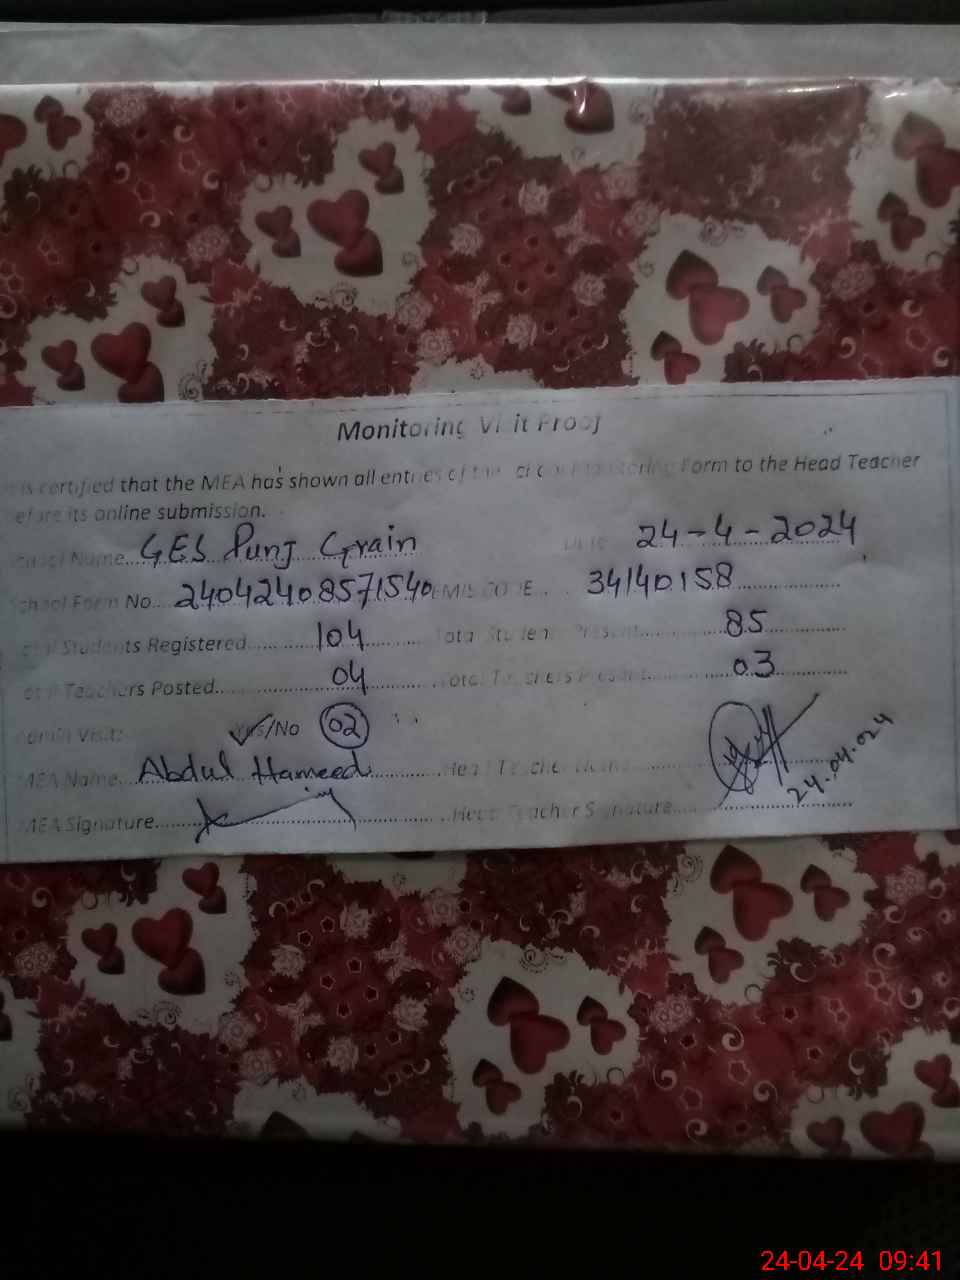 Monitoring Visit Proof
is certified that the MEA has shown all entries of the Monitoring Form to the Head Teacher
before its online submission.
School Name GES Punj Grain Date 24-4-2024
School Form No. 24042408571540 EMIS CODE 34140158
Total Students Registered 104 Total Students Present 85
Total Teachers Posted 04 Total Teachers Present 03
Admin Visit: Yes/No 02
MEA Name Abdul Hameed Head Teacher Name
MEA Signature Head Teacher Signature
24.04.024
24-04-24 09:41